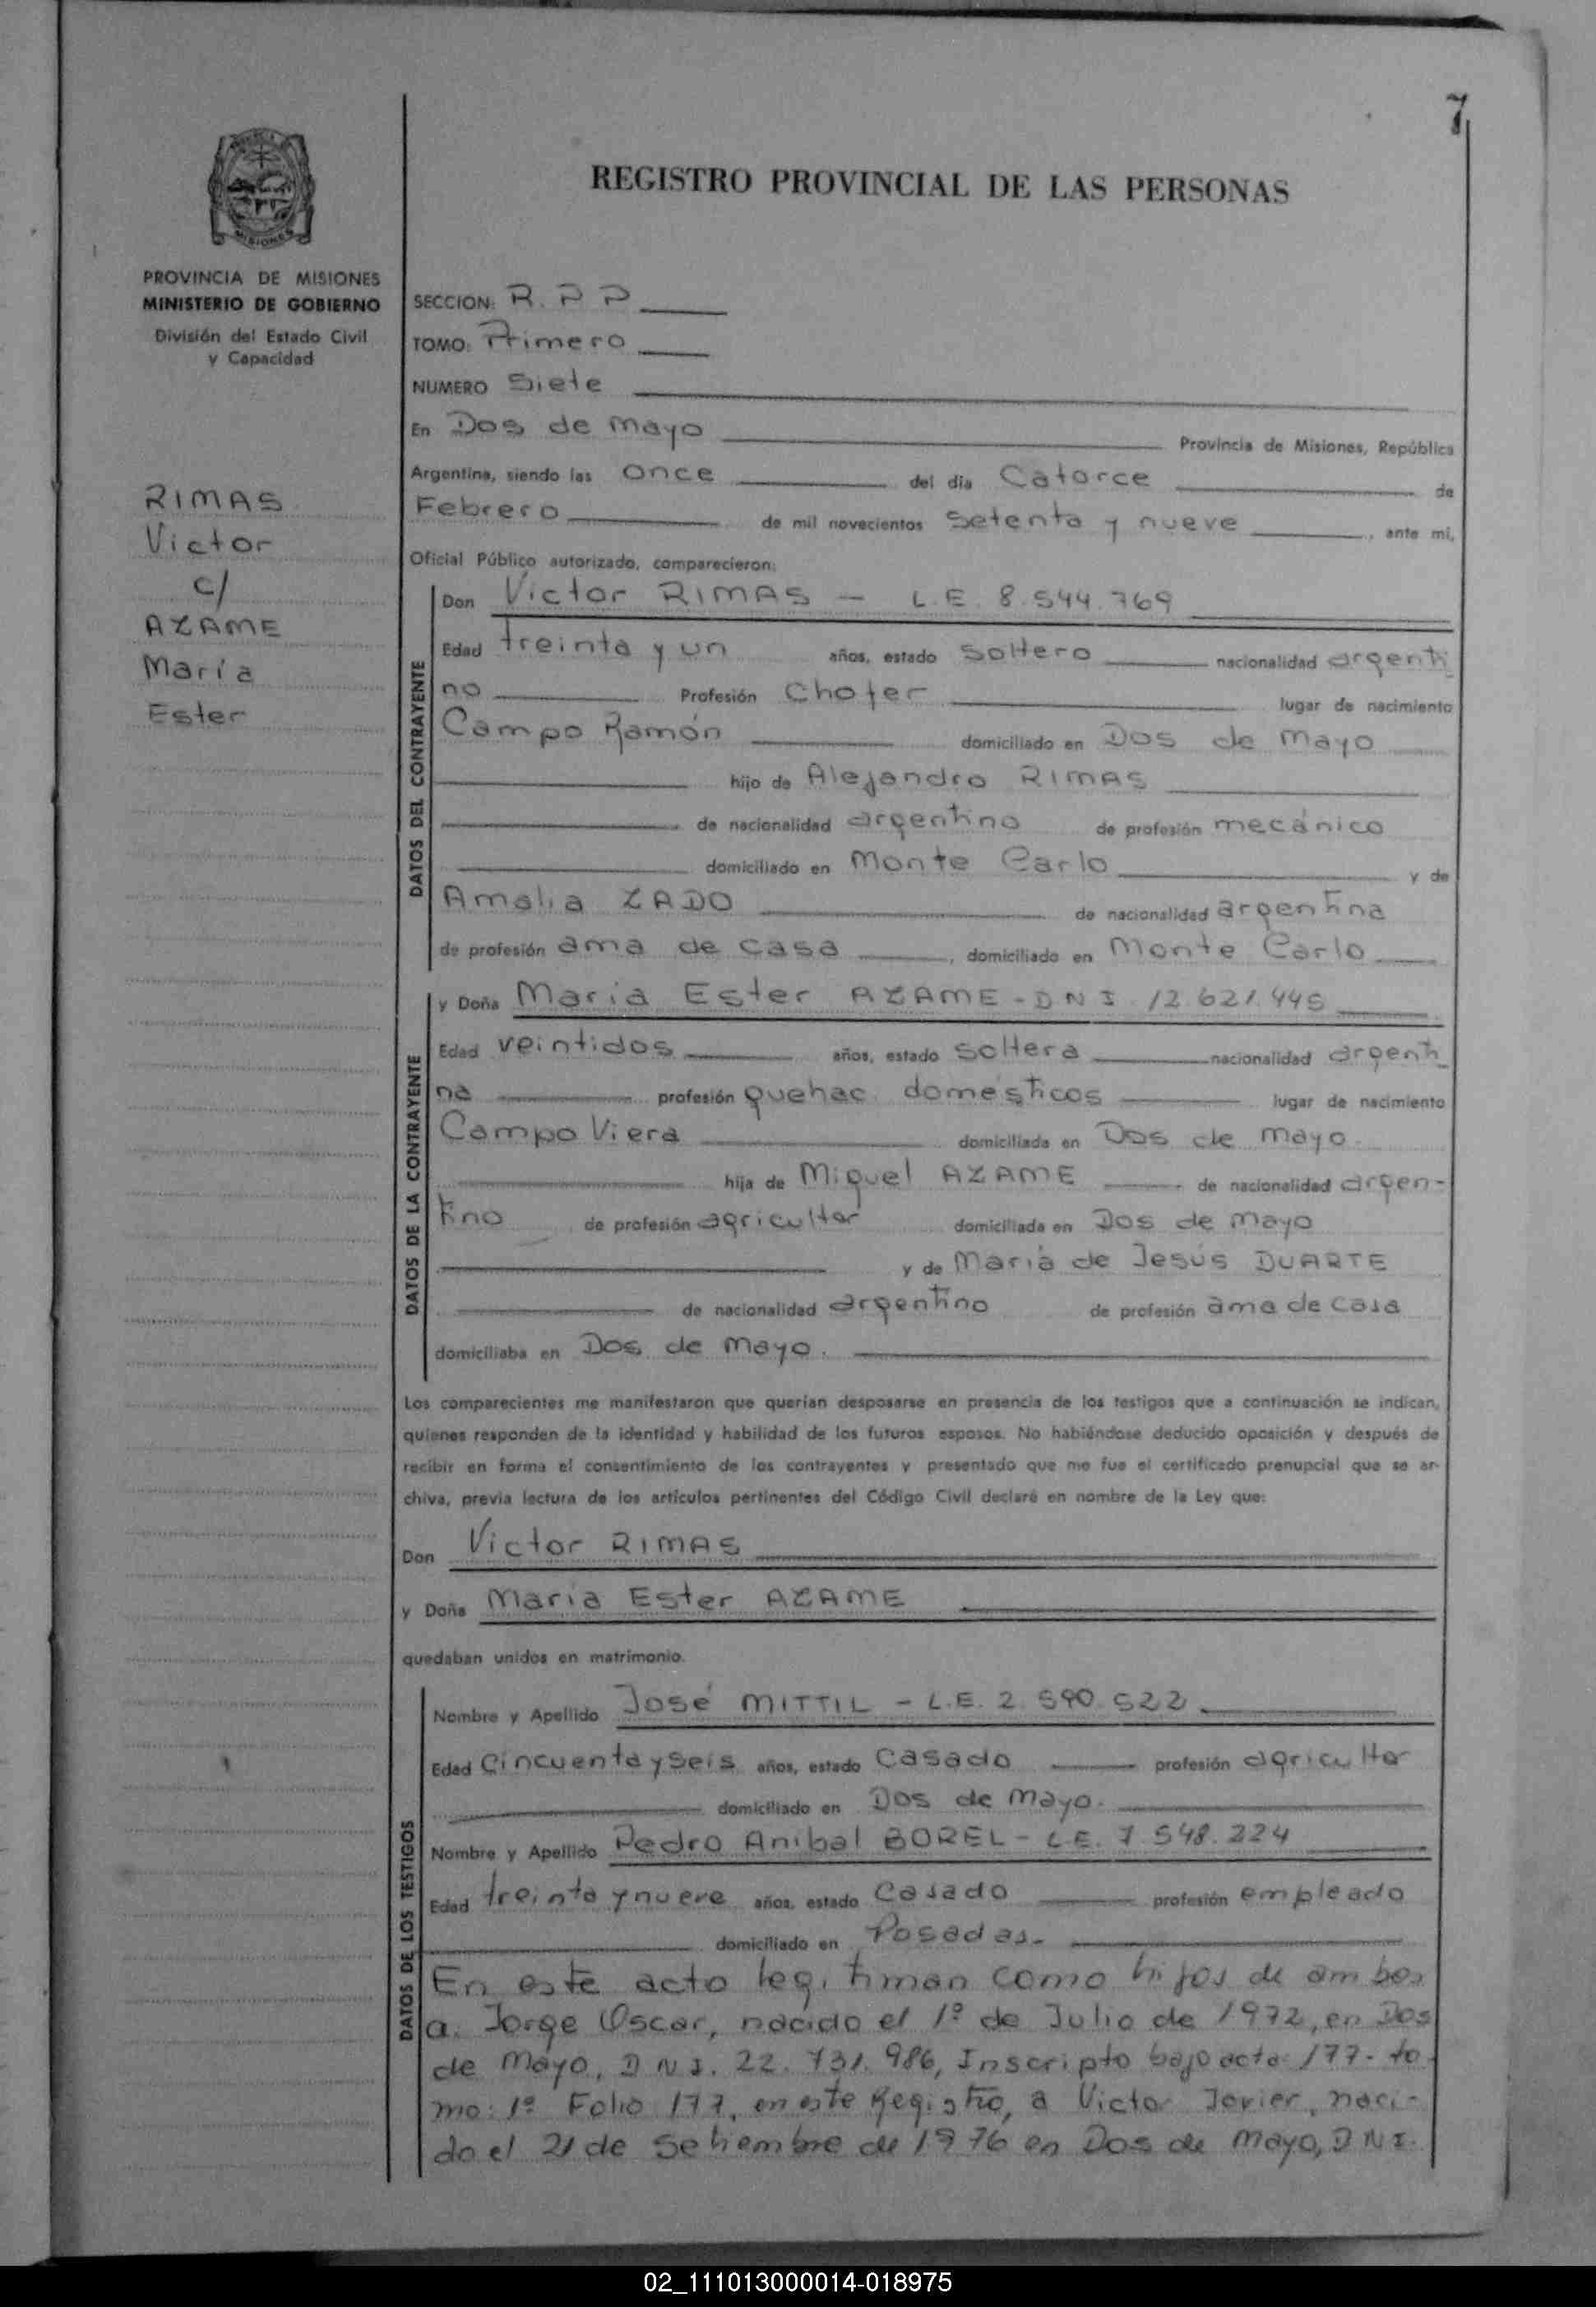 7
MISIONES
PROVINCIA DE MISIONES
MINISTERIO DE GOBIERNO
División del Estado Civil
y Capacidad
RIMAS
Victor
c/
AZAME
María
Ester
REGISTRO PROVINCIAL DE LAS PERSONAS
SECCION: R. P P
TOMO: Primero
NUMERO Siete
En Dos de Mayo Provincia de Misiones, República
Argentina, siendo las Once del día Catorce de
Febrero de mil novecientos setenta y nueve, ante mi,
Oficial Público autorizado, comparecieron:
DATOS DEL CONTRAYENTE
Don Victor RIMAS - L.E. 8.544.769
Edad treinta y un años, estado soltero nacionalidad argenti
no Profesión Chofer lugar de nacimiento
Campo Ramón domiciliado en Dos de Mayo
hijo de Alejandro RIMAS
de nacionalidad argentino de profesión mecánico
domiciliado en Monte Carlo y de
Amalia ZADO de nacionalidad argentina
de profesión ama de casa, domiciliado en Monte Carlo
DATOS DE LA CONTRAYENTE
y Doña Maria Ester AZAME - DNI. 12.621.445
Edad veintidos años, estado soltera nacionalidad argenti
na profesión quehac. domésticos lugar de nacimiento
Campo Viera domiciliada en Dos de Mayo.
hija de Miguel AZAME de nacionalidad argen-
tino de profesión agricultor domiciliada en Dos de Mayo
y de María de Jesús DUARTE
de nacionalidad argentino de profesión ama de casa
domiciliaba en Dos de Mayo.
Los comparecientes me manifestaron que querían desposarse en presencia de los testigos que a continuación se indican,
quienes responden de la identidad y habilidad de los futuros esposos. No habiéndose deducido oposición y después de
recibir en forma el consentimiento de los contrayentes y presentado que me fue el certificado prenupcial que se ar-
chiva, previa lectura de los artículos pertinentes del Código Civil declaré en nombre de la Ley que:
Don Victor RIMAS
y Doña Maria Ester AZAME
quedaban unidos en matrimonio.
DATOS DE LOS TESTIGOS
Nombre y Apellido José MITTIL - L.E. 2.590.522
Edad Cincuenta y seis años, estado Casado profesión agricultor
domiciliado en Dos de Mayo.
Nombre y Apellido Pedro Anibal BOREL - L.E. 7.548.224
Edad treinta y nueve años, estado Casado profesión empleado
domiciliado en Posadas.
En este acto legitiman como hijos de ambos
a: Jorge Oscar, nacido el 1º de Julio de 1972, en Dos
de Mayo, DNI. 22.731.986, Inscripto bajo acta 177- to
mo: 1º Folio 177, en este Registro, a Victor Javier, naci-
do el 21 de Setiembre de 1976 en Dos de Mayo, DNI.
02_111013000014-018975